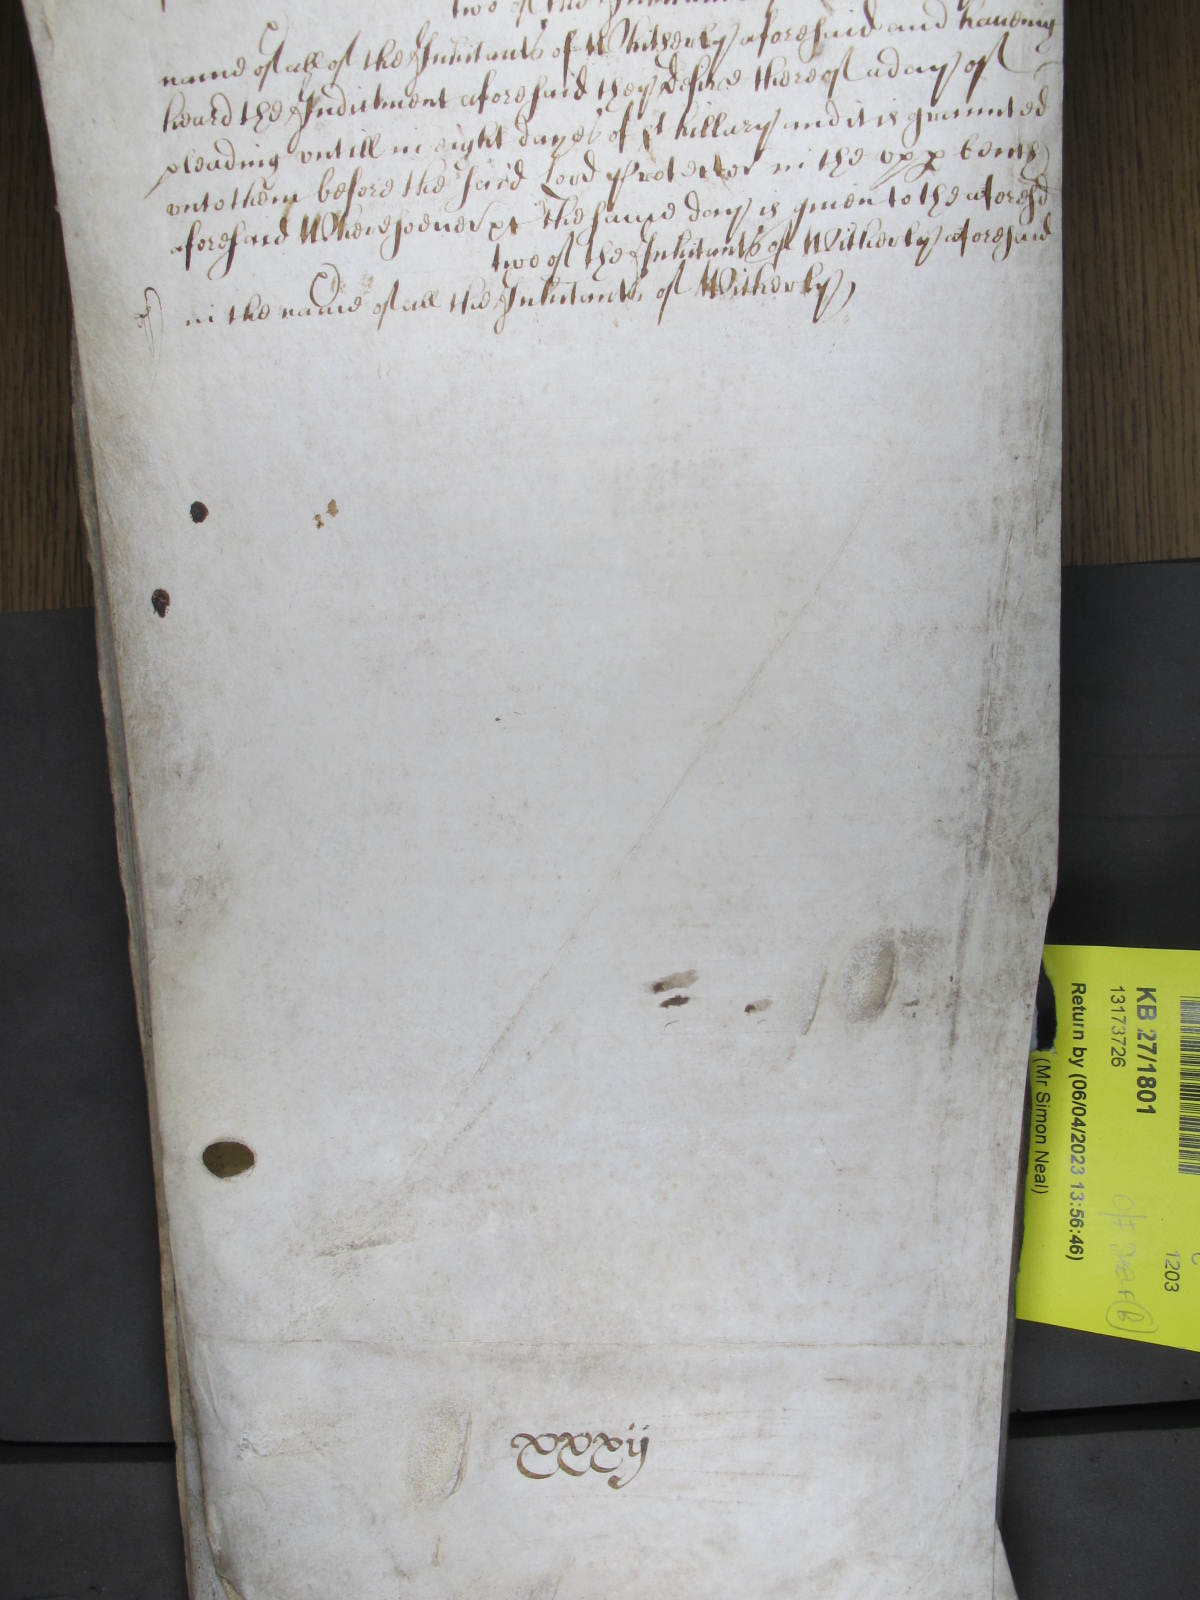 two of the Inhitants
name of all of the Inhitants of Witherly aforesaid and haueing
heard the Indictment aforesaid they desire thereof a day of
pleading vntill in eight dayes of St hillary and it is graunted
vnto them before the said Lord Protector in the vpp bench
aforesaid Wheresoeuer &c the same day is giuen to the aforesd
two of the Inhitants of Witherly aforesaid
in the name of all the Inhitants of Witherly,
xxxij
KB 27/1801
13173726
Return by (06/04/2023 13:56:46)
(Mr Simon Neal)
1203